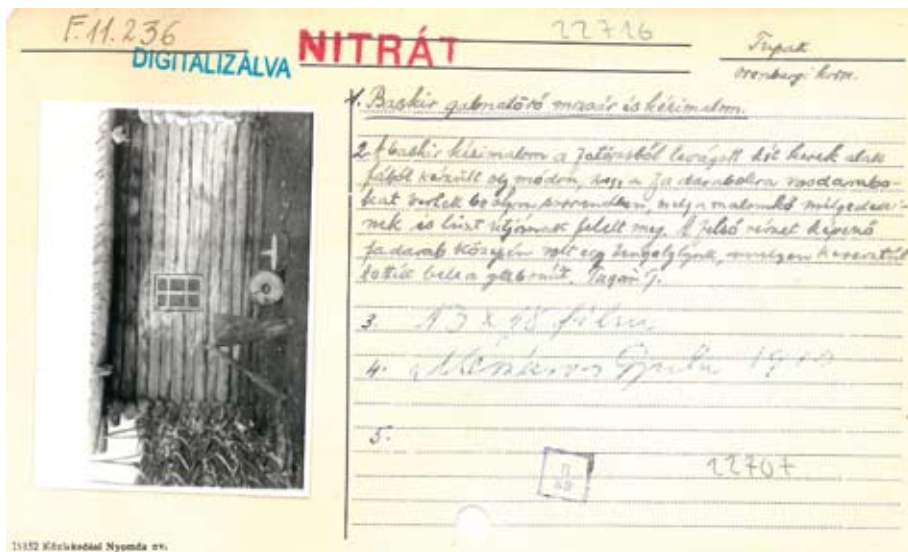 F. 11.236
DIGITALIZÁLVA
NITRÁT
22716
Tupak
orenburgi korm.
1. Baskir gabnatörő mozsár és kézimalom.
2. A baskir kézimalom a fatörzsből levágott két kerek alak
fából készült oly módon, hogy a fa darabokra vasdarabo-
kat vertek be olyan sorrendben, mely a malomkő mélyedései-
nek és liszt útjának felelt meg. A felső részt képező
fadarab közepén volt egy tengelylyuk, melyen keresztül
bele a gabonát. Tagán G.
3. 13 x 18 film
4. Mészáros Gyula 19
5.
22707
15152 Közlekedési Nyomda nv.